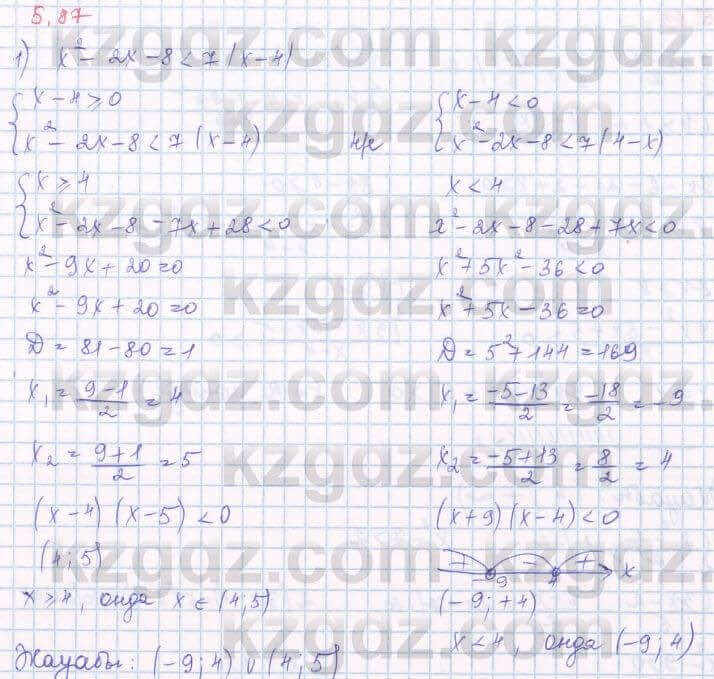 5.87
1) x² - 2x - 8 < 7 |x-4|
{x - 4 ≥ 0
x² - 2x - 8 < 7 (x-4)
н/е
{x - 4 < 0
x² - 2x - 8 < 7 (4-x)
{x ≥ 4
x² - 2x - 8 - 7x + 28 < 0
x² - 9x + 20 = 0
x² - 9x + 20 = 0
D = 81 - 80 = 1
x₁ = (9-1)/2 = 4
x₂ = (9+1)/2 = 5
(x-4) (x-5) < 0
(4; 5)
x ≥ 4, онда x ∈ (4; 5)
x < 4
x² - 2x - 8 - 28 + 7x < 0
x² + 5x² - 36 < 0
x² + 5x - 36 = 0
D = 5² + 144 = 169
x₁ = (-5-13)/2 = -18/2 = -9
x₂ = (-5+13)/2 = 8/2 = 4
(x+9) (x-4) < 0
+ - + x
-9 4
(-9; +4)
x < 4, онда (-9; 4)
Жауабы: (-9; 4) ∪ (4; 5)
kzgdz.com